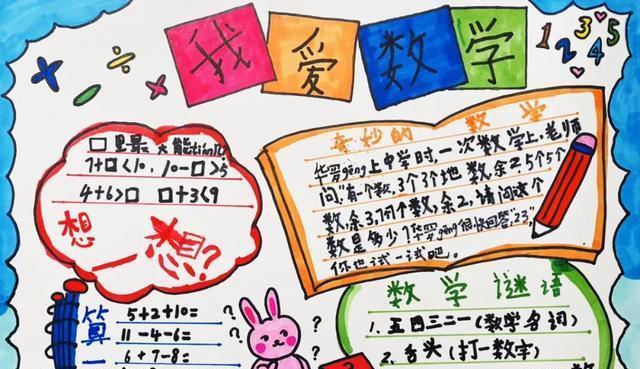 我爱数学
1 2 3 4 5
+ ÷ ÷ ×
□里最大能tián几
7+□<10, 10-□>5
4+6>□ □+3<9
想一想?
奇妙的数学
华罗gēng上中学时,一次数学上,老师
问,"有一个数,3个3个地数,余2,5个5个
数,余3,7个7个数,余2,请问这个
数是多少?华罗gēng很快回答,"23,"
你也试一试吧。
算一
5+2+10=
11-4-6=
6+7-8=
? ? ?
数学谜语
1. 五四三二一(数学名词)
2. 舌头(打一数字)